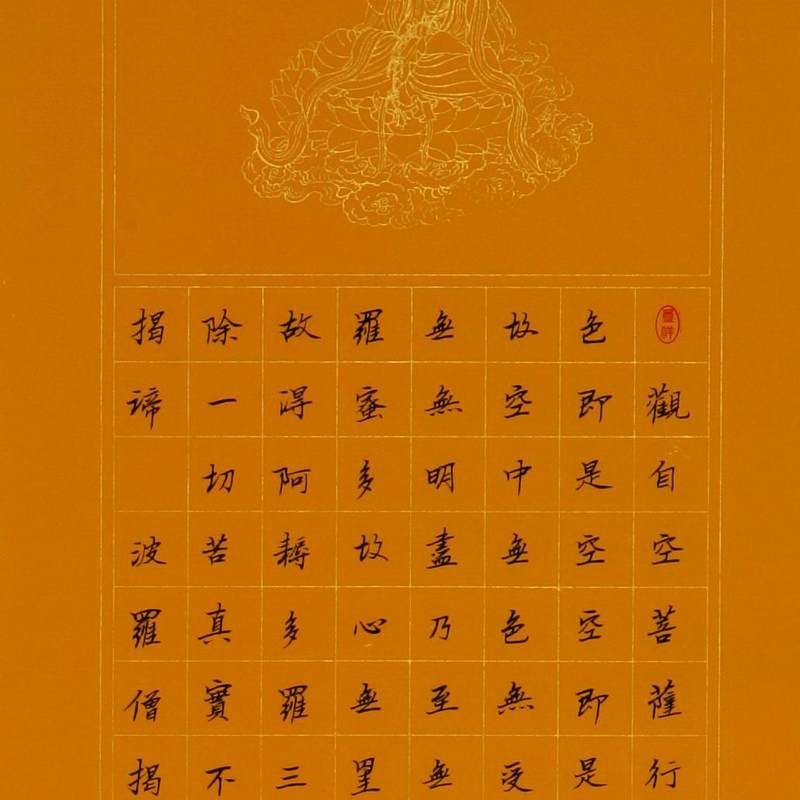 觀自空菩薩行
色即是空空即是
故空中無色無受
無無明盡乃至無
羅蜜多故心無罣
故得阿耨多羅三
除一切苦真實不
揭諦 波羅僧揭